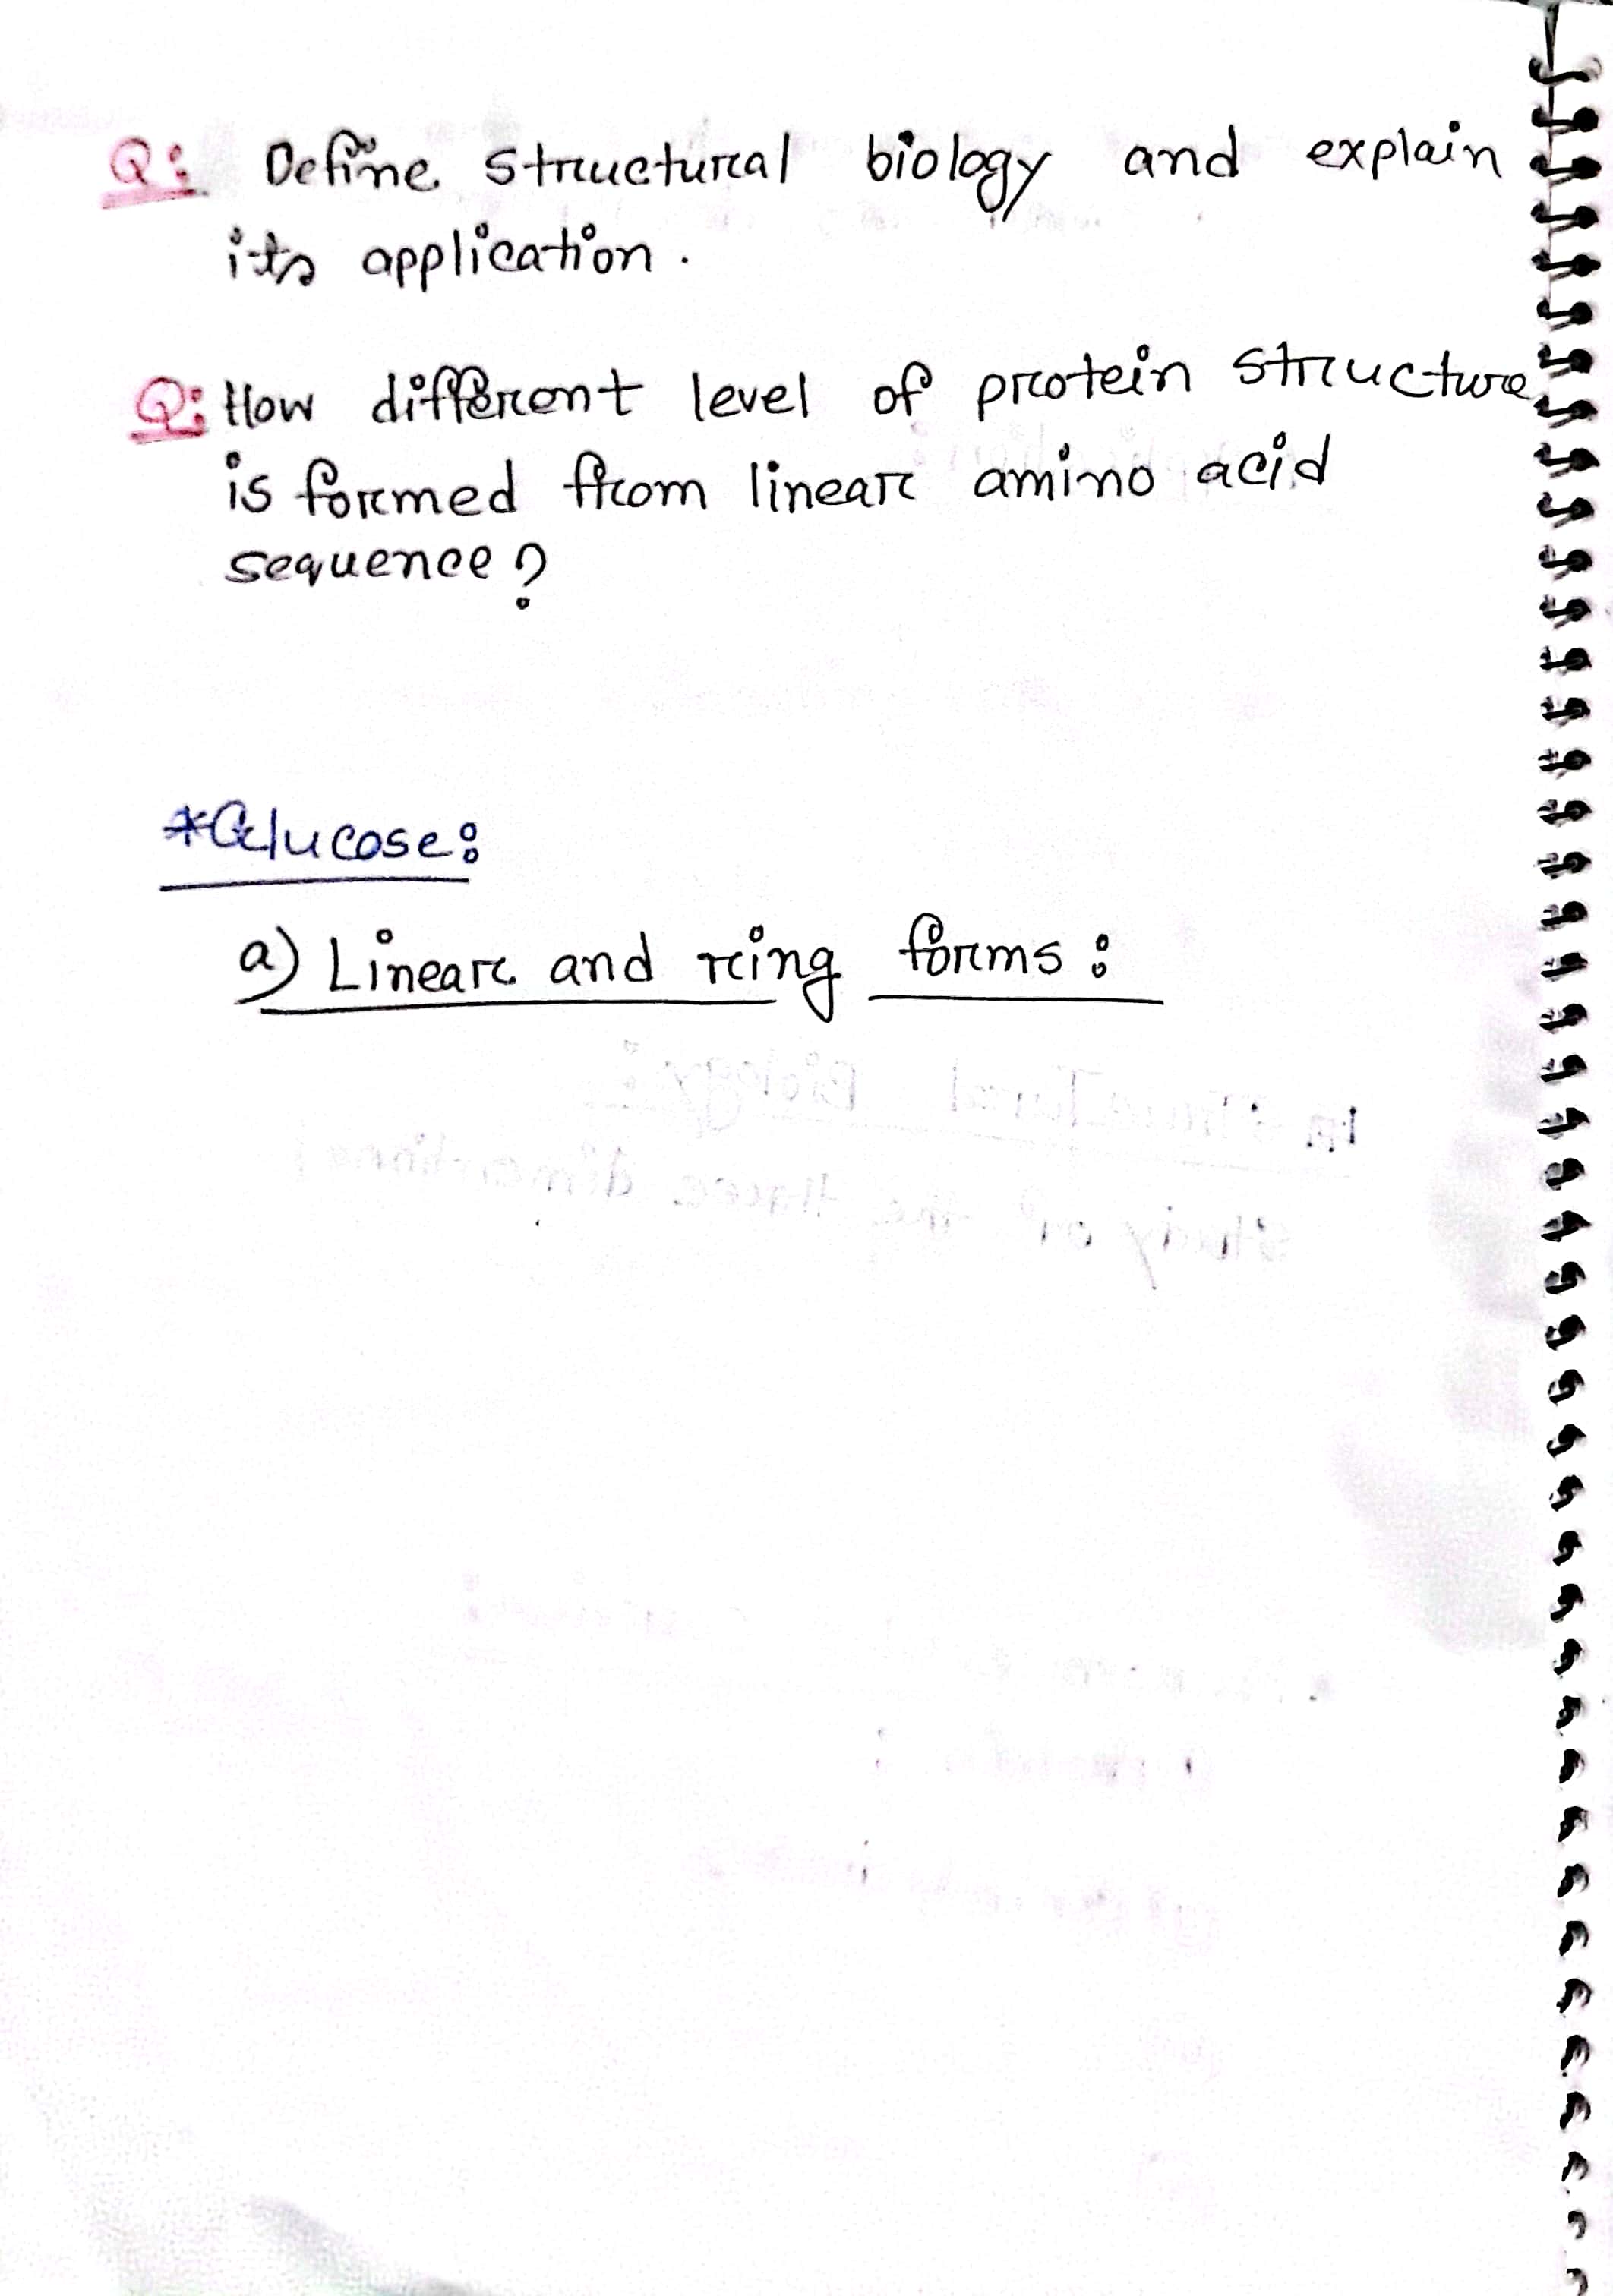 Q: Define structural biology and explain
its application.
Q: How different level of protein structure
is formed from linear amino acid
sequence?
*Glucose:
a) Linear and ring forms: